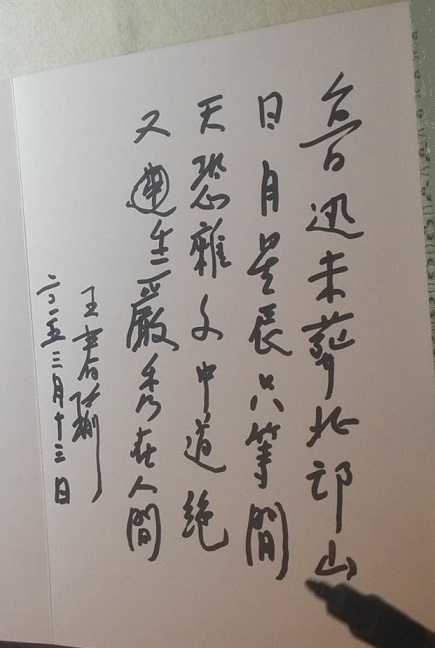 魯迅未葬北邙山
日月星辰只等閒
天恐雜文中道絕
又生嚴秀在人間
王春瑜
二〇一五三月十三日